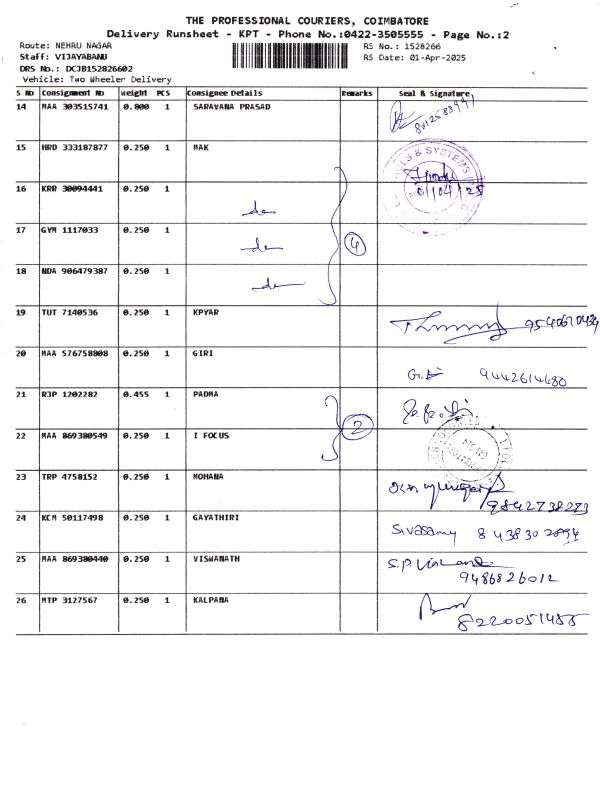 THE PROFESSIONAL COURIERS, COIMBATORE
Delivery Runsheet - KPT - Phone No.:0422-3505555 - Page No.:2
Route: NEHRU NAGAR RS No.: 1528266
Staff: VIJAYABANU RS Date: 01-Apr-2025
DRS No.: DCJB152826602
Vehicle: Two Wheeler Delivery
S No Consignment No Weight PCS Consignee Details Remarks Seal & Signature
14 MAA 303515741 0.800 1 SARAVANA PRASAD
15 HRD 333187877 0.250 1 MAK
16 KRR 30094441 0.250 1 do
17 GYM 1117033 0.250 1 do 4
18 NDA 906479387 0.250 1 do
19 TUT 7140536 0.250 1 KPYAR
20 MAA 576758808 0.250 1 GIRI 9442614480
21 RJP 1202282 0.455 1 PADMA 2
22 MAA 869380549 0.250 1 I FOCUS
23 TRP 4758152 0.250 1 MOHANA 9842738273
24 KCM 50117498 0.250 1 GAYATHIRI Sivasamy 8438302894
25 MAA 869380440 0.250 1 VISWANATH 9486826012
26 MTP 3127567 0.250 1 KALPANA 8220051455